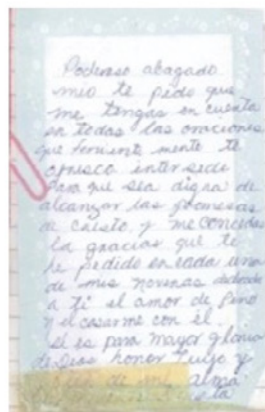 Poderoso abogado
mio te pido que
me tengas en cuenta
en todas las oraciones
que ferviente mente te
ofresco intersede
para que sea digna de
alcanzar las promesas
de cristo, y me concedas
la gracias que te
he pedido en cada una
de mis novenas dedicada
a ti el amor de fino
y el casarme con él.
si es para mayor gloria
de Dios honor tuyo y
bien de mi alma